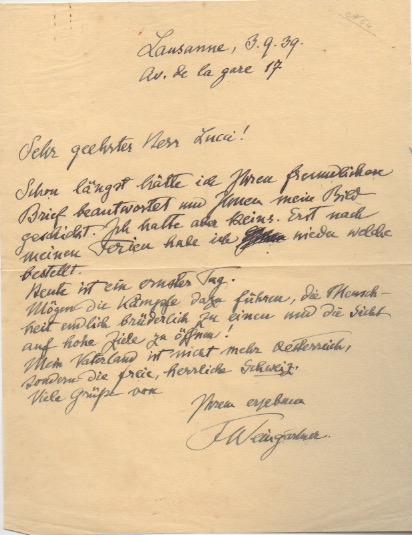 Lausanne, 3.9.39.
Av. de la gare 17
Sehr geehrter Herr Lucci!
Schon längst hätte ich Ihren freundlichen
Brief beantwortet und Ihnen mein Bild
geschickt. Ich hatte aber keins. Erst nach
meinen Ferien habe ich wieder welche
bestellt.
Heute ist ein ernster Tag.
Mögen die Kämpfe dazu führen, die Mensch-
heit endlich brüderlich zu einen und die Sicht
auf hohe Ziele zu öffnen!
Mein Vaterland ist nicht mehr Oesterreich,
sondern die freie, herrliche Schweiz.
Viele Grüße von
Ihrem ergebenen
F Weingartner.